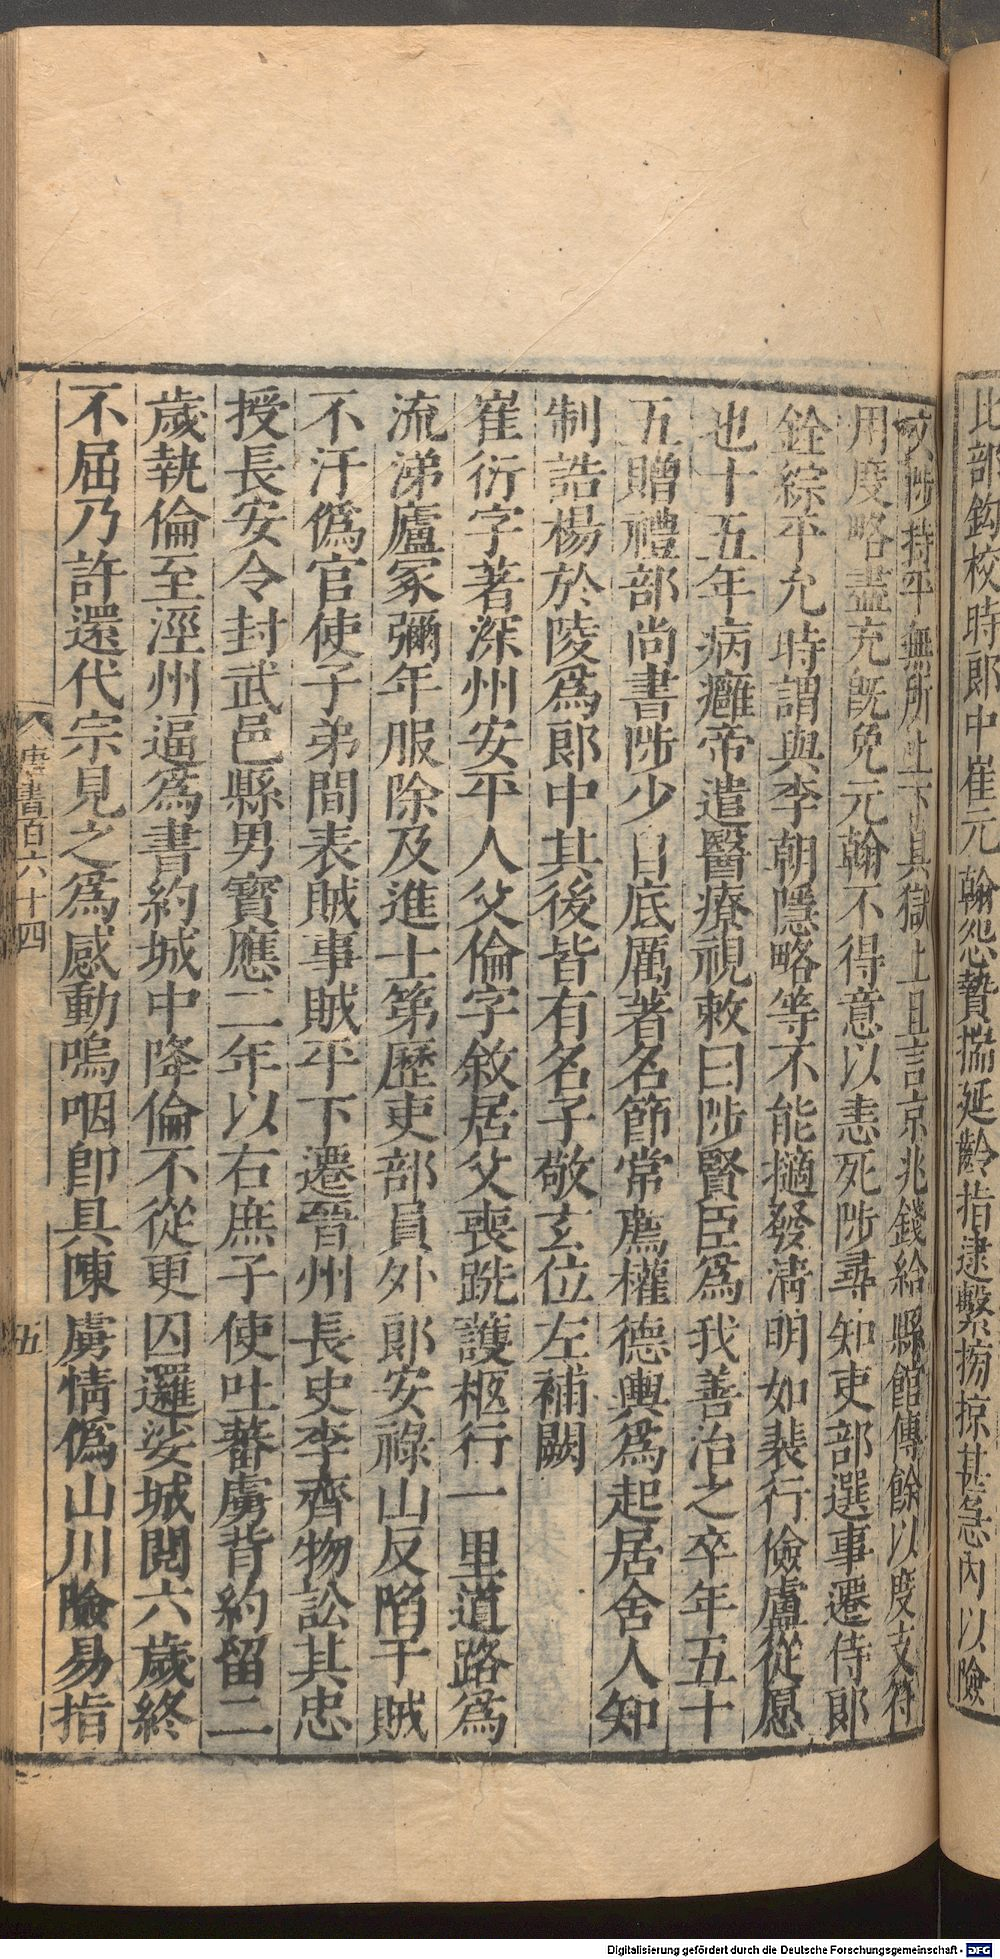 比部鈎校時郎中崔元翰怨贄揣延齡指逮繫搒掠甚急內以險
文陟持平無所上下具獄上且言京兆錢給縣館傳餘以度支符
用度略盡充旣免元翰不得意以恚死陟尋知吏部選事遷侍郎
銓綜平允時謂與李朝隱略等不能擿發淸明如裴行儉盧從愿
也十五年病癰帝遣醫療視敕曰陟賢臣爲我善治之卒年五十
五贈禮部尚書陟少自底厲著名節常薦權德輿爲起居舍人知
制誥楊於陵爲郎中其後皆有名子敬玄位左補闕
崔衍字著深州安平人父倫字敘居父喪跣護柩行一里道路爲
流涕廬冢彌年服除及進士第歷吏部員外郎安祿山反陷于賊
不汗僞官使子弟間表賊事賊平下遷晉州長史李齊物訟其忠
授長安令封武邑縣男寶應二年以右庶子使吐蕃虜背約留二
歲執倫至涇州逼爲書約城中降倫不從更囚邏娑城閱六歲終
不屈乃許還代宗見之爲感動嗚咽卽具陳虜情僞山川險易指
唐書百六十四
五
Digitalisierung gefördert durch die Deutsche Forschungsgemeinschaft - DFG